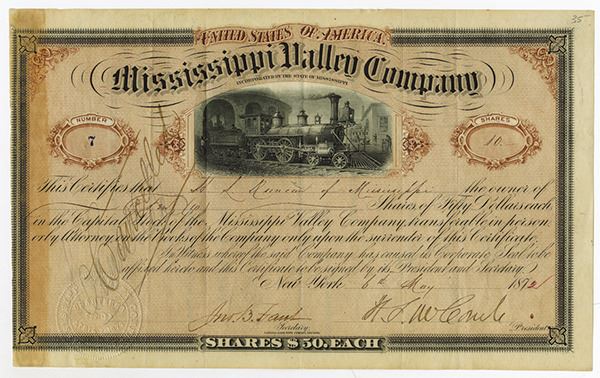 35
UNITED STATES OF AMERICA.
Mississippi Valley Company
INCORPORATED BY THE STATE OF MISSISSIPPI
NUMBER
7
SHARES
10
Cancelled
This Certifies that of Mississippi the owner of
Shares of Fifty Dollars each
in the Capital Stock of the Mississippi Valley Company, transferable in person
or by Attorney on the Books of the Company only upon the surrender of this Certificate
In Witness whereof the said Company has caused its Corporate Seal to be
affixed hereto and this Certificate to be signed by its President and Secretary.
New York 6th May 1872
Jno. B.
Secretary
President
SHARES $50. EACH